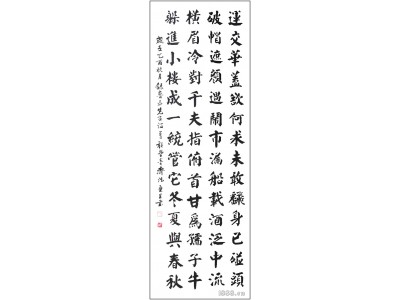 運交華蓋欲何求未敢飜身已碰頭
破帽遮顏過鬧市漏船載酒泛中流
橫眉冷對千夫指俯首甘爲孺子牛
躲進小樓成一統管它冬夏與春秋
歲在乙酉秋月錄魯迅先生